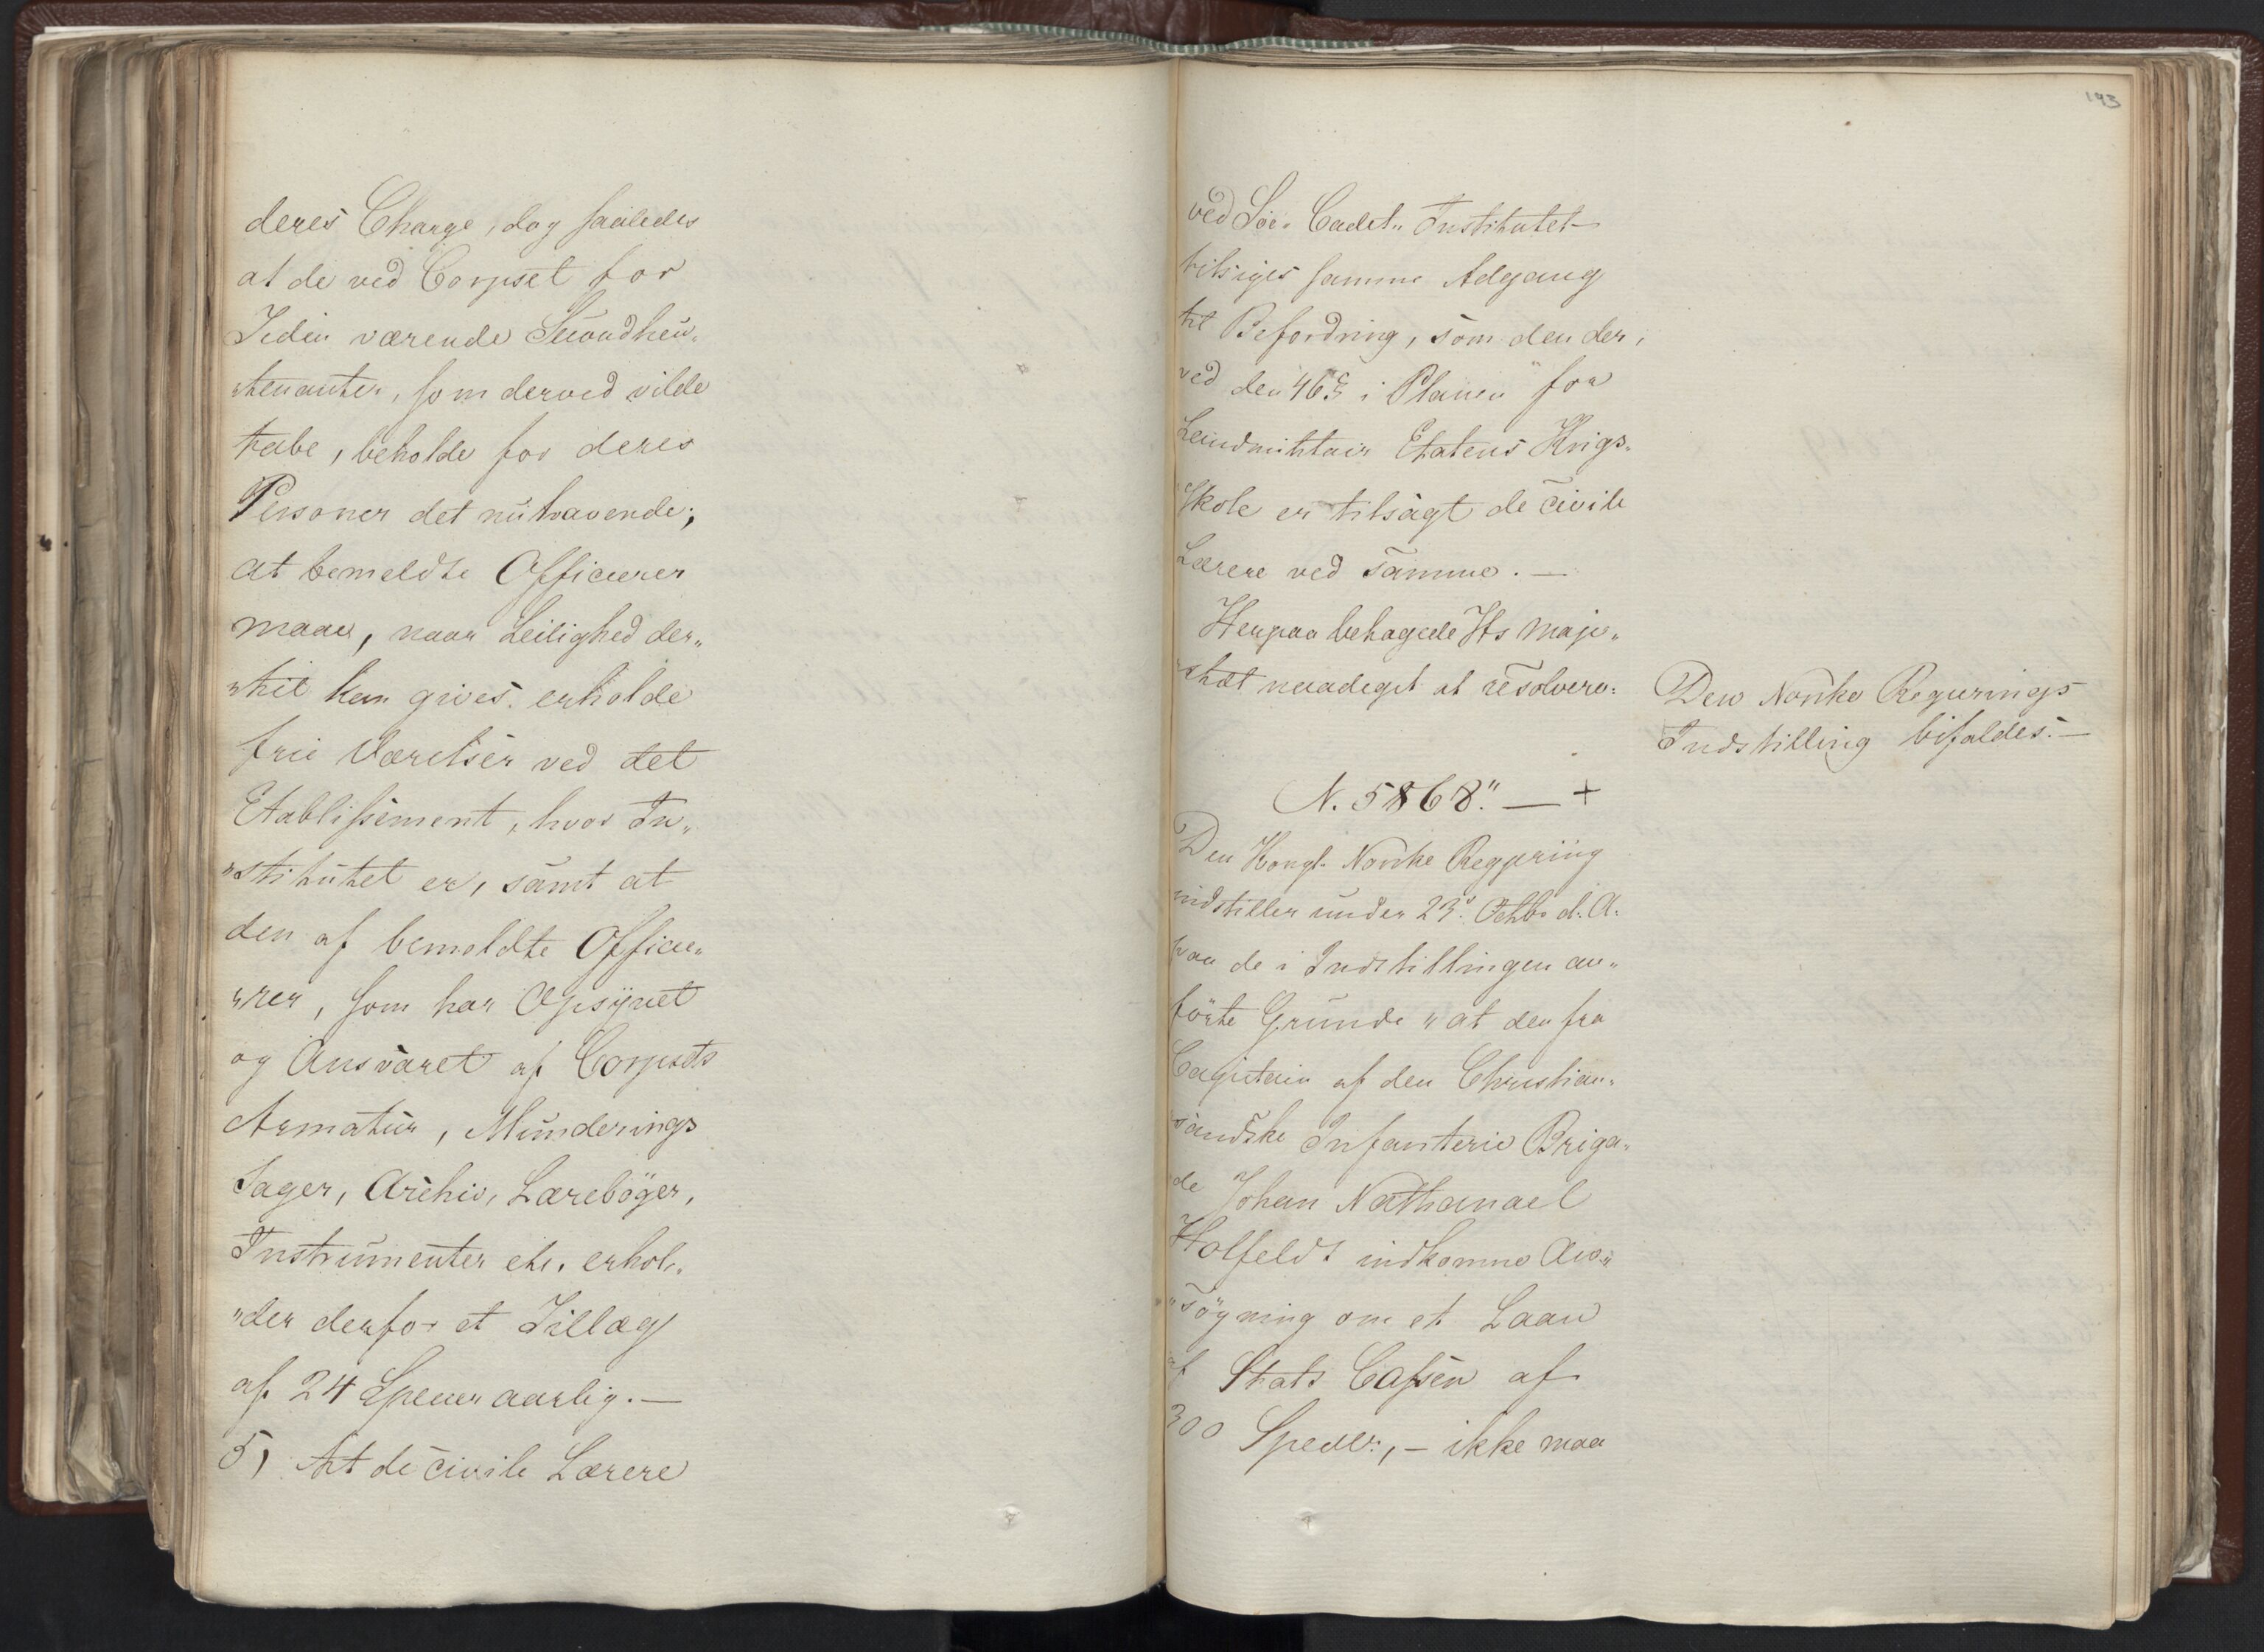 deres Charge, dog saaledes
at de ved Corpset for
Tiden værende Secondlieu„
„tenanter, som derved vilde
tabe, beholde for deres
Personer det nu havende;
at bemeldte Officerer
maae, naar Leilighed der„
„til kan gives. erholde
frie Værelser ved det
Etablissement, hvor In„
„stitutet er, samt at
den af bemeldte Office„
„rer, som har Opsÿnet
og Ansvaret af Corpsets
Armatur, Munderings
Sager, Archiv, Lærebøger,
Instrumenter etc. erhol„
„der derfor et Tillæg
af 24 Species aarlig. —
5, At de civile Lærere
193
ved Søe„ Cadet„ Institutet
tilsiges samme Adgang
til Befordring, som den der,
ved den 46 § i Planen for
Landmilitair Etatens Krigs„
Skole er tilsagt de civile
Lærere ved samme. —
Herpaa behagede Hs Maje„
„stæt naadigst at resolvere:
Den Norske Regjerings
Indstilling bifaldes. —
N. 5868." — +
Den Kongl. Norske Regjering
indstiller under 23d. Octbr d. A.
paa de i Indstillingen an„
førte Grunde „at den fra
Capitain af den Christian„
sandske Infanterie Briga„
de Johan Nathanael
Holfeldt indkomne An„
„søgning om et Laan
af Stats Cassen af
300 Spedlr:, — ikke maa